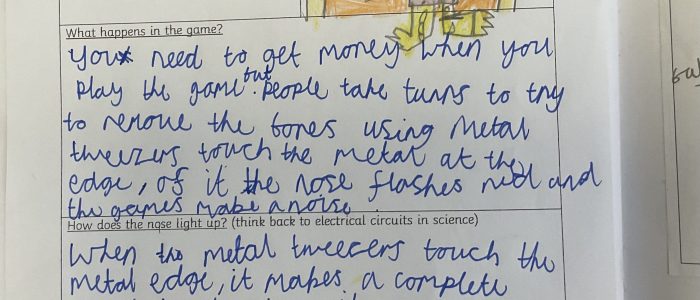 What happens in the game?
You need to get money when you
play the game but. People take turns to try
to remove the bones using metal
tweezers touch the metal at the
edge, of it the nose flashes red and
the games make a noise
How does the nose light up? (think back to electrical circuits in science)
When the metal tweezers touch the
metal edge, it makes a complete